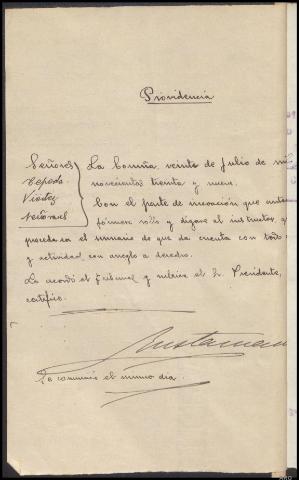 Providencia
Señores
Cepeda
Viéitez
La Coruña, veinte de Julio de mil
novecientos treinta y nueve.
Con el parte de incoación que
fórmese rollo y dígase al instructor
proceda en el sumario de que da cuenta con todo
y actividad con arreglo a derecho.
Lo acordó el Tribunal y rubrica el Sr. Presidente,
certifico.
Se comunicó el mismo día.